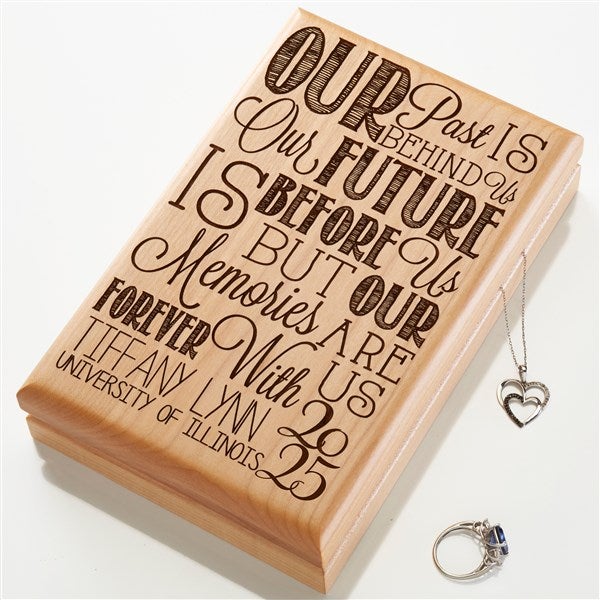 OUR Past IS
BEHIND Us
Our FUTURE
IS BEFORE Us
BUT OUR
Memories ARE
FOREVER With US
TIFFANY LYNN
UNIVERSITY OF ILLINOIS
2025